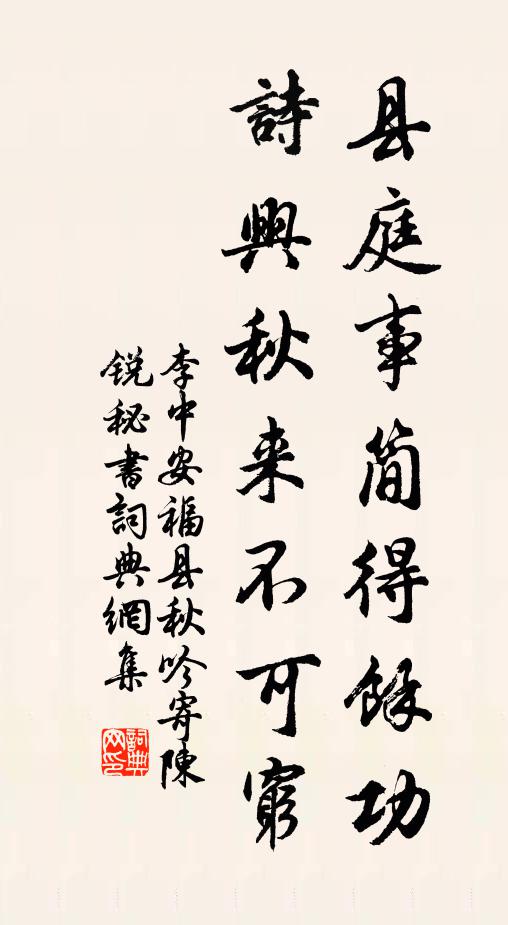 县庭事简得馀功
詩興秋来不可窮
李中安福县秋吟寄陳
锐秘書詞典網集
詞典
网印